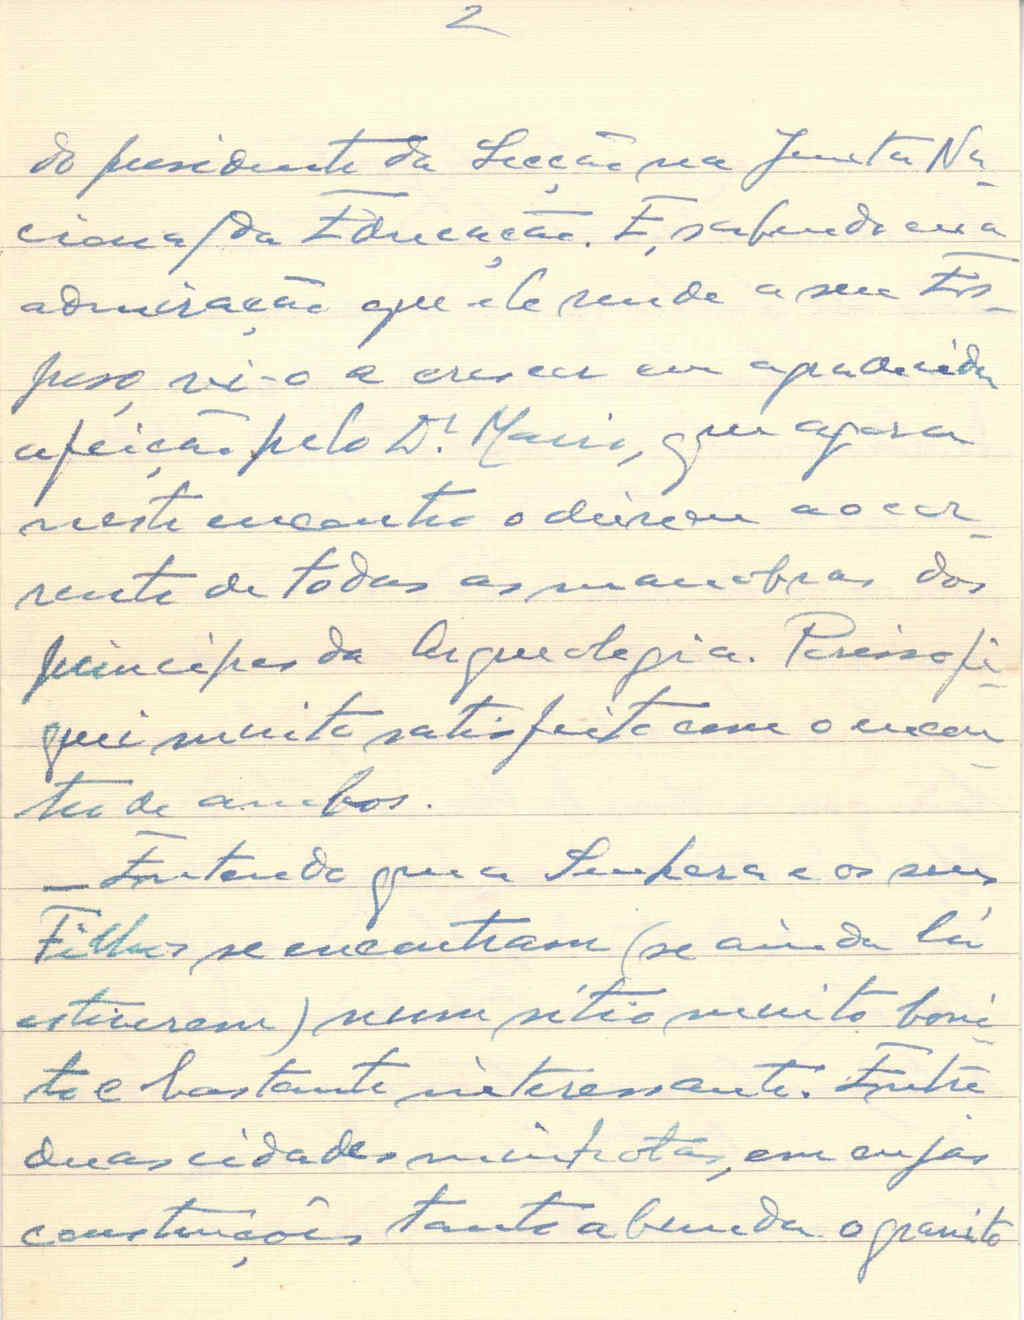 2
do presidente da Secção na Junta Na-
cional da Educação. E, sabendo eu a
admiração que ele rende a seu Es-
poso, vi-o a crescer em apadecida
afeição pelo Dr. Mário, que agora
neste encontro o deixou ao cor-
rente de todas as manobras dos
principes da Arqueologia. Por isso fi-
quei muito satisfeito com o encon-
tro de ambos.
— Entendo que a Senhora e os seus
Filhos se encontram (se ainda lá
estiverem) num sítio muito boni-
to e bastante interessante. Entre
duas cidades minhotas, em cujas
construções tanto abunda o granito